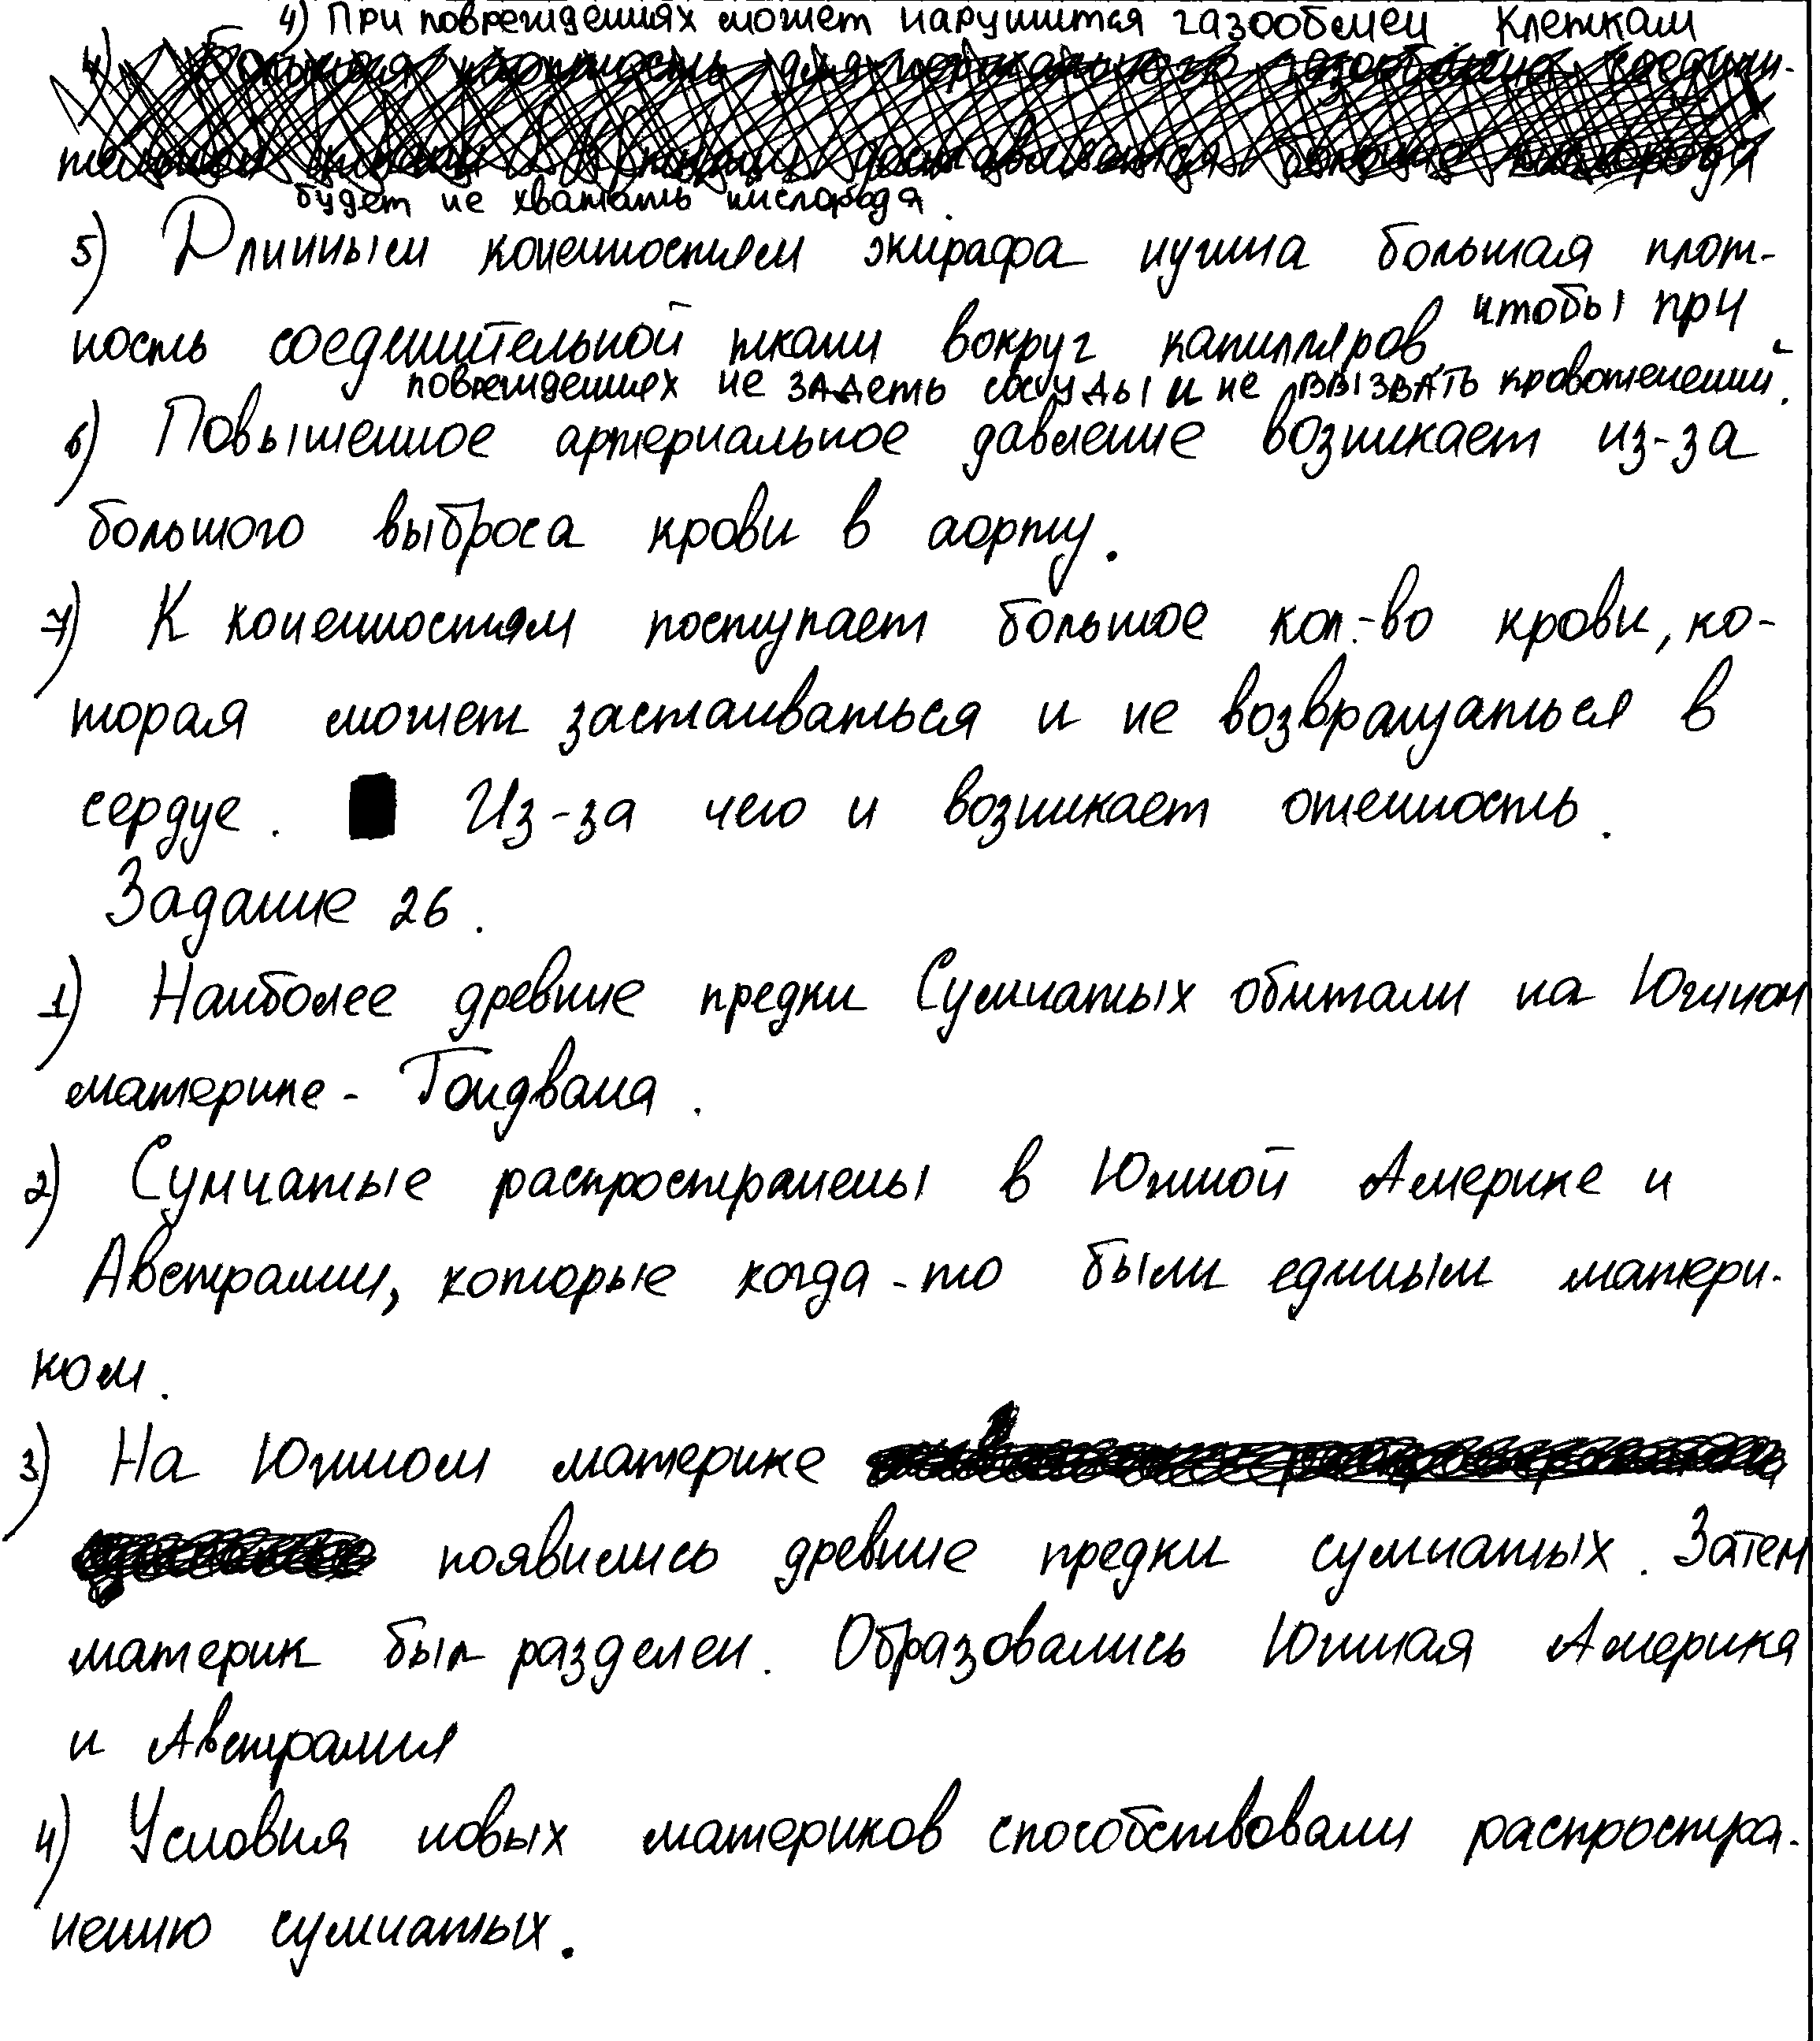 4) При повреждениях может нарушится газообмен. Клеткам
будет не хватать кислорода.
5) Длинным конечностям жирафа нужна большая плот-
ность соединительной ткани вокруг капилляров, чтобы при
повреждениях не задеть сосуды и не ввызвать кровотечений.
6) Повышенное артериальное давление возникает из-за
большого выброса крови в аорту.
7) К конечностям поступает большое кол.-во крови, ко-
торая может застаиваться и не возвращаться в
сердце. Из-за чего и возникает отечность.
Задание 26.
1) Наиболее древние предки Сумчатых обитали на Южном
материке - Гондвана.
2) Сумчатые распространены в Южной Америке и
Австралии, которые когда-то были единым матери-
ком.
3) На Южном материке
появились древние предки сумчатых. Затем
материк был разделен. Образовались Южная Америка
и Австралия
4) Условия новых материков способствовали распростра-
нению сумчатых.